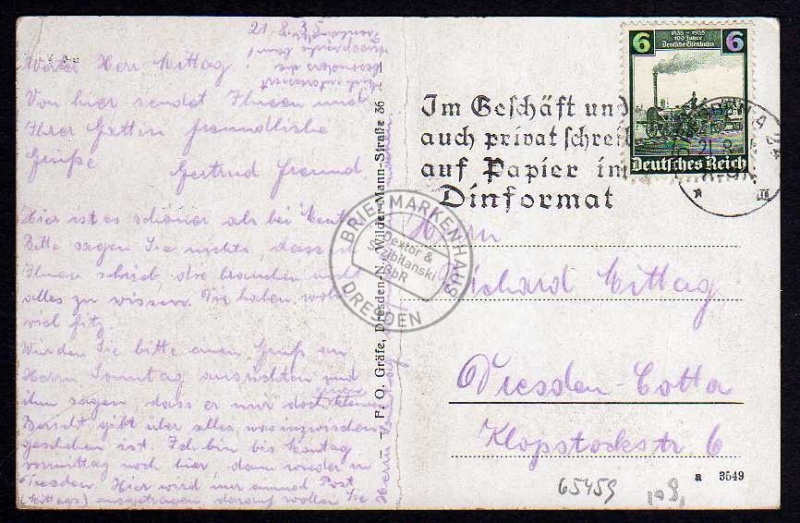 21.8.35
Werter Herr Mittag!
Von hier sendet Ihnen und
Ihrer Gattin freundliche
Grüße
Gertrud Freund.
Hier ist es schöner als bei
Bitte sagen Sie nichts, dass ich
Ihnen schrieb, die brauchen nicht
alles zu wissen. Sie haben wohl
viel
Würden Sie bitte einen Gruß an
Herrn Sonntag ausrichten und
ihm sagen, dass er mir doch kleinen
Bericht gibt über alles, was inzwischen
geschehen ist. Ich bin bis Montag
vormittag noch hier, dann wieder in
Dresden. Hier wird nur einmal Post
(Mittags) ausgetragen, darauf wollen Sie
P. O. Gräfe, Dresden-N., Wilder-Mann-Straße 36
6 1835 - 1935 6
100 Jahre
Deutsche Eisenbahn
Deutsches Reich
Im Geschäft und
auch privat schreib
auf Papier im
Dinformat
21.8.
BRIEFMARKENHAUS
Dextor &
GbR
DRESDEN
Herrn
Richard Mittag
Dresden-Cotta
Klopstockstr 6
a 3549
65459